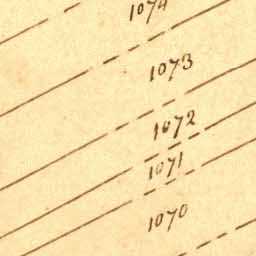 1074
1073
1072
1071
1070